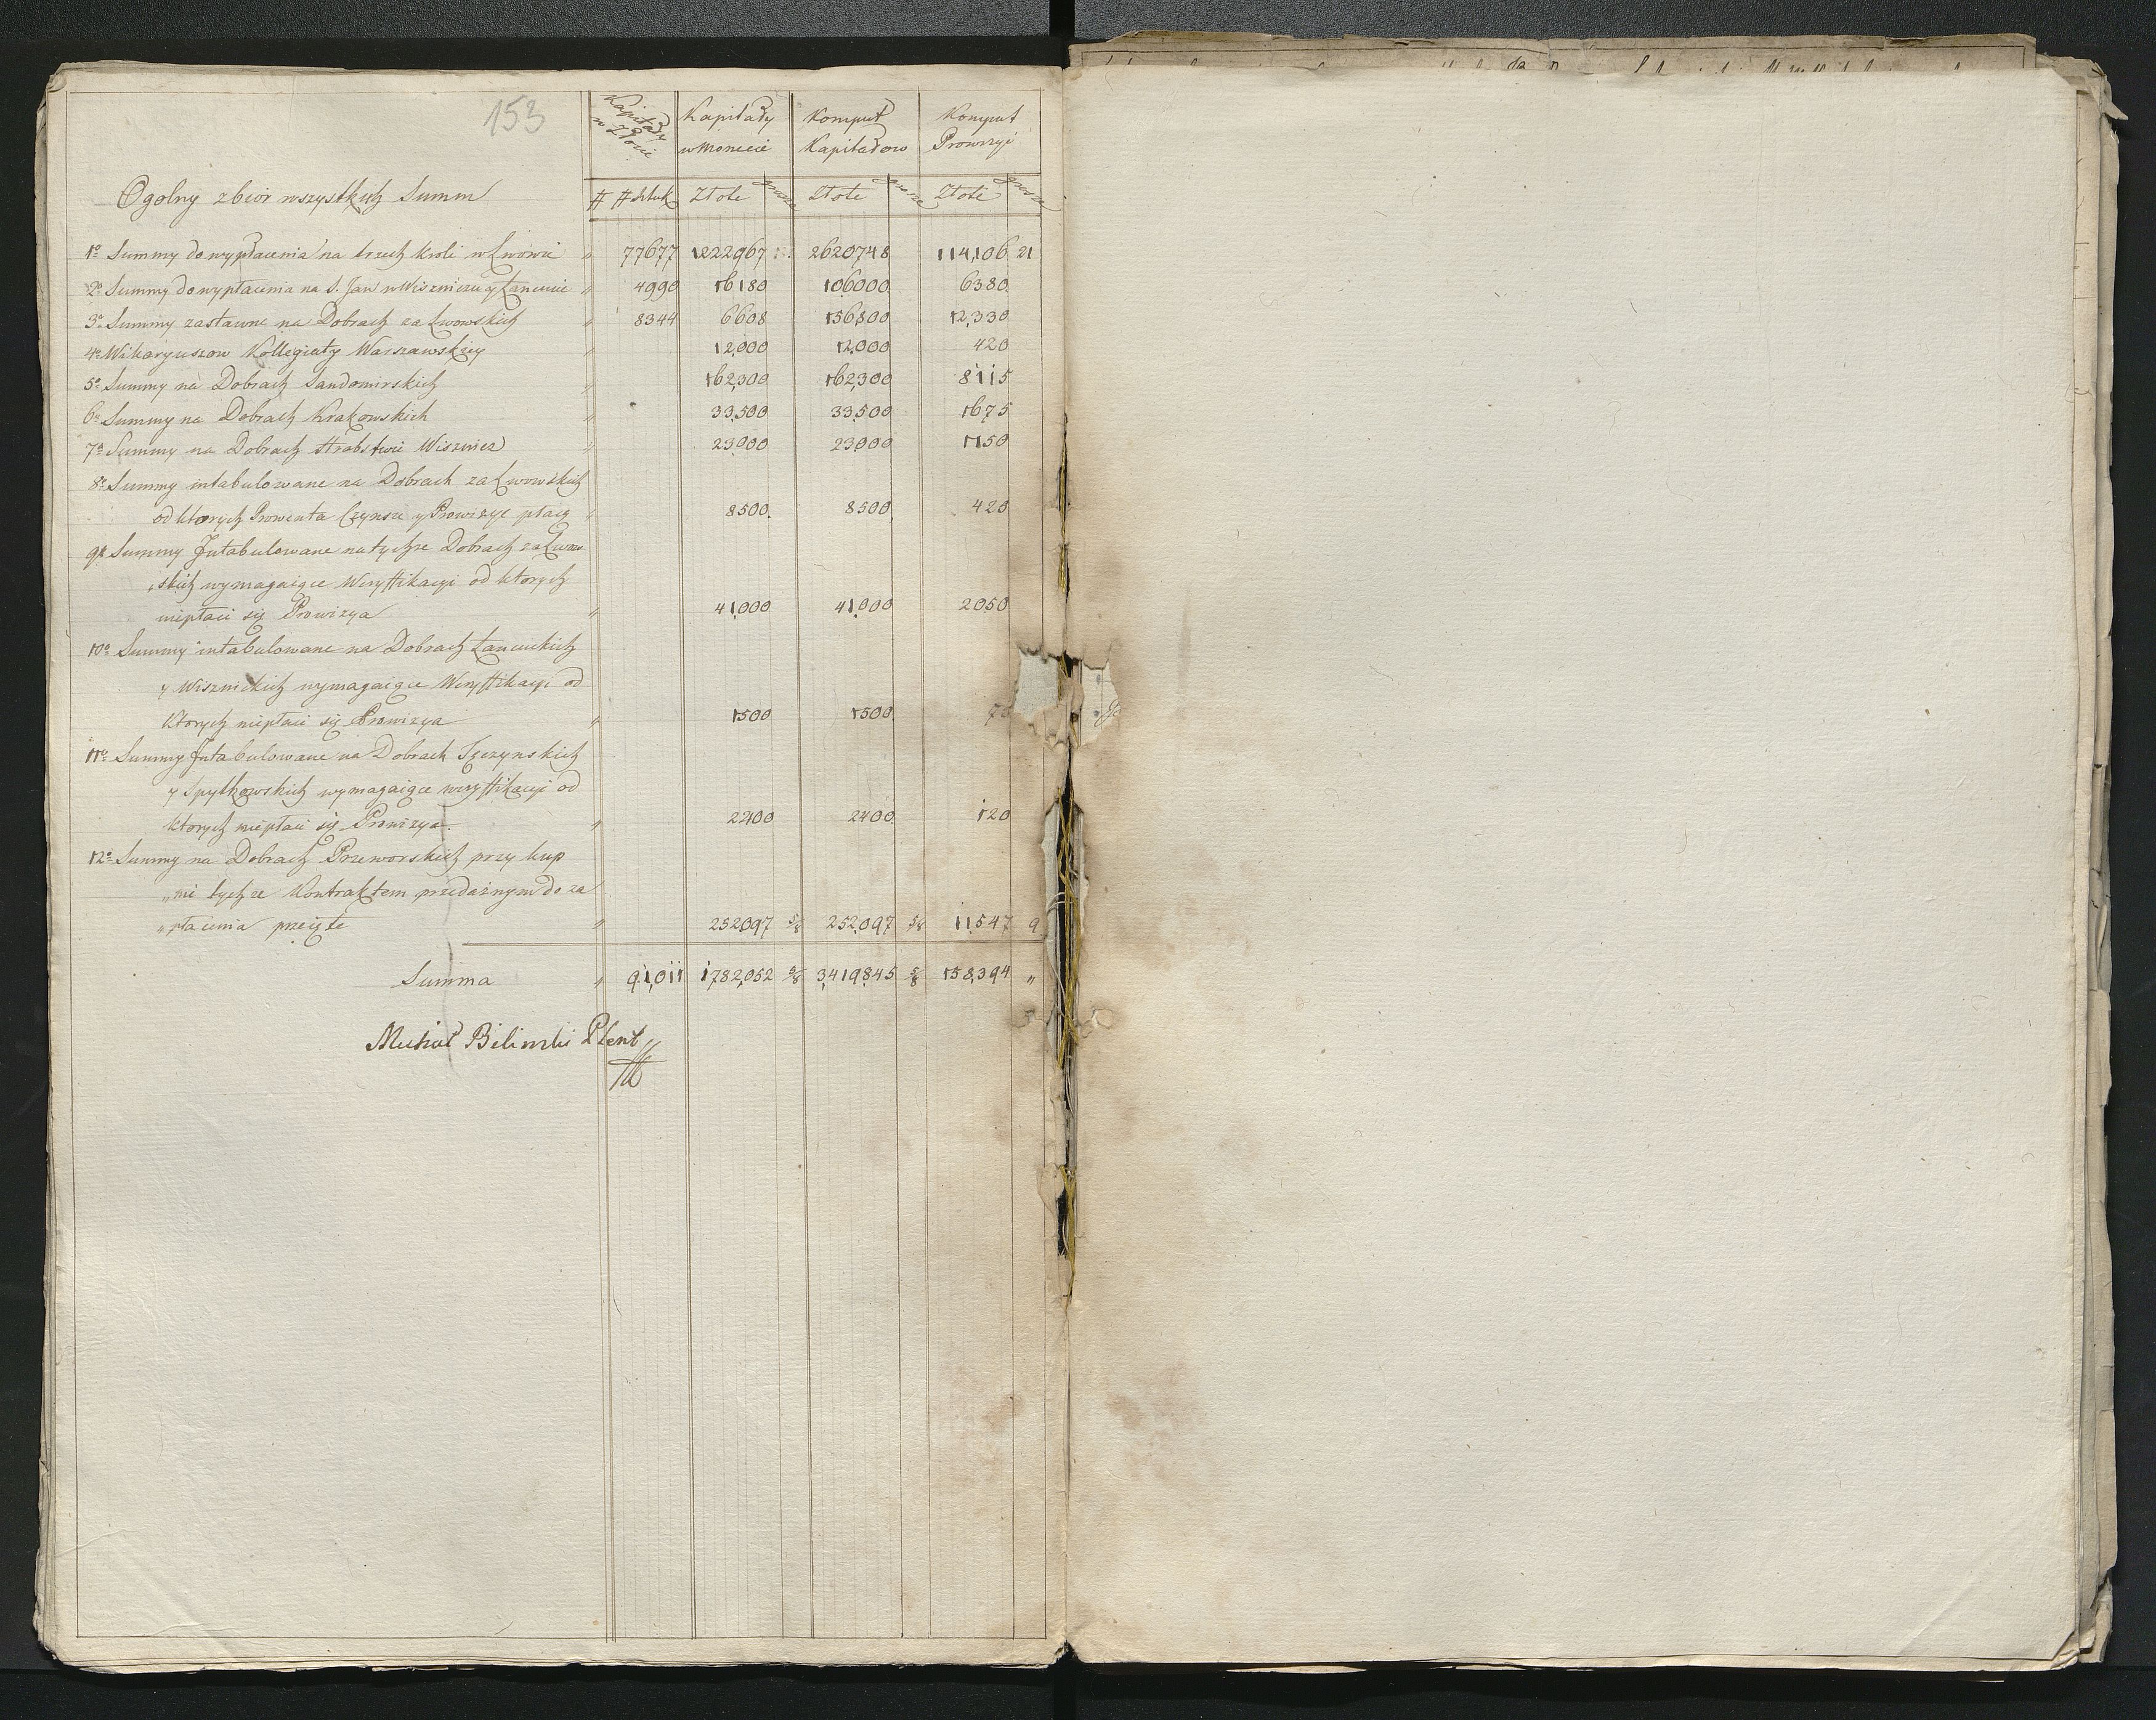 153
Kapitały w Złocie Kapitały w Monecie Komput Kapitałow Komput Prowizyi
Ogolny zbior wszystkich Summ # # sztuk Złote grosze Złote grosze Złote grosze
1o Summy do wypłacenia na trzech kroli w Lwowie " 77677 1222967 2620748 114,106 21
2o Summy do wypłacenia na S. Jan w Wiszniczu y Łancucie " 4990 16180 106000 6380
3o Summy zastawne na Dobrach za Lwowskich " 8344 6608 156800 12,330
4o Wikaryuszow Kollegiaty Warszawskiey " 12,000 12,000 420
5o Summy na Dobrach Sandomirskich " 162,300 162,300 8115
6o Summy na Dobrach Krakowskich " 33,500 33,500 1675
7o Summy na Dobrach Hrabstwie Wisznicz " 23,000 23,000 1150
8o Summy intabulowane na Dobrach za Lwowskich
od ktorych Prowenta Czynsze y Prowizye płacą " 8500 8500 420
9o Summy Intabulowane na tychze Dobrach za Lwow
"skich wymagaiące Weryffikacyi od ktorych
niepłaci się Prowizya " 41,000 41,000 2050
10o Summy intabulowane na Dobrach Łancuckich
y Wisznickich wymagaiące Weryffikacyi od
ktorych niepłaci się Prowizya " 1500 1500
11o Summy Intabulowane na Dobrach Tęczynskich
y Spytkowskich wymagaiące weryffikacyi od
ktorych niepłaci się Prowizya. " 2400 2400 120
12o Summy na Dobrach Przeworskich przy kup
"nie tychze Kontraktem przedażnym do za
"płacenia przeięte " 252,097 5/8 252,097 5/8 11,547 9
Summa " 91,011 1,782,052 5/8 3,419,845 5/8 158,394 "
Michał Bilinski Plent